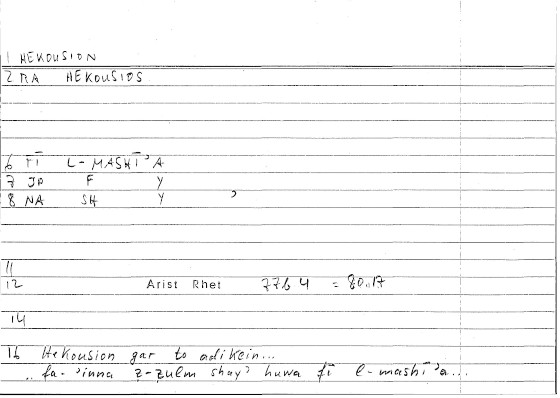 1 HEKOUSION
2 RA HEKOUSIOS
6 FĪ L-MASHĪʾA
7 JP F Y
8 NA SH Y ʾ
11
12 Arist Rhet 77b4 = 80.17
14
16 Hekousion gar to adikein...
.. fa-ʾinna ẓ-ẓulm shayʾ huwa fī l-mashīʾa...